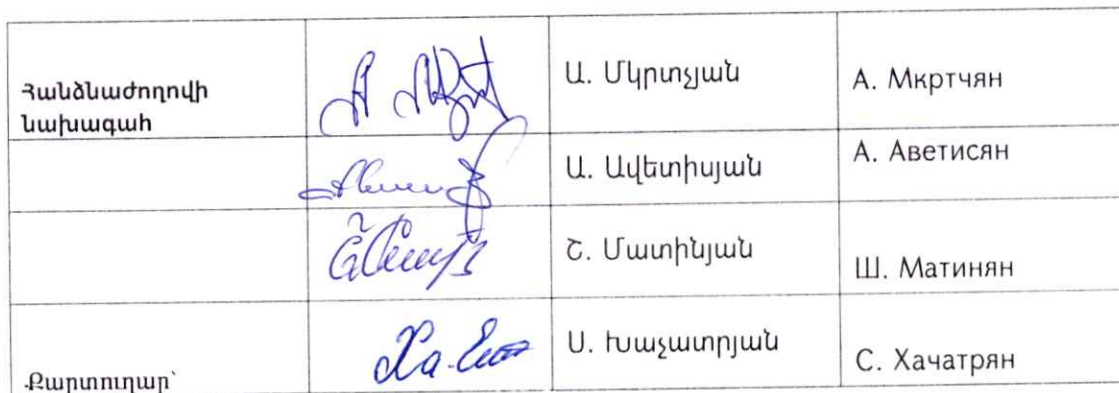 Հանձնաժողովի
նախագահ
Ա. Մկրտչյան
А. Мкртчян
Ա. Ավետիսյան
А. Аветисян
Շ. Մատինյան
Ш. Матинян
Քարտուղար՝
Ս. Խաչատրյան
С. Хачатрян